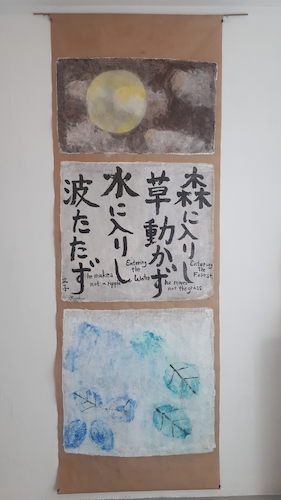 森に入りし
草動かず
水に入りし
波たたず
Entering
the
Forest
he moves
not the grass
Entering
the
Water
he makes
not a ripple